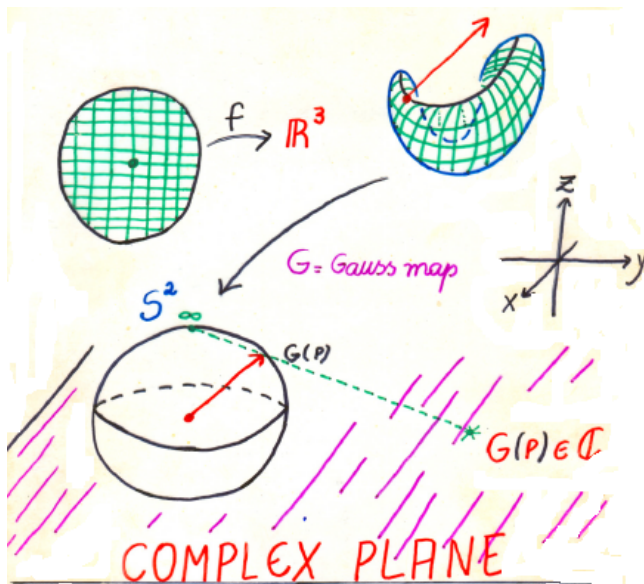 f
ℝ³
z
y
x
G = Gauss map
S²
∞
G(P)
G(P) ∈ ℂ
COMPLEX PLANE